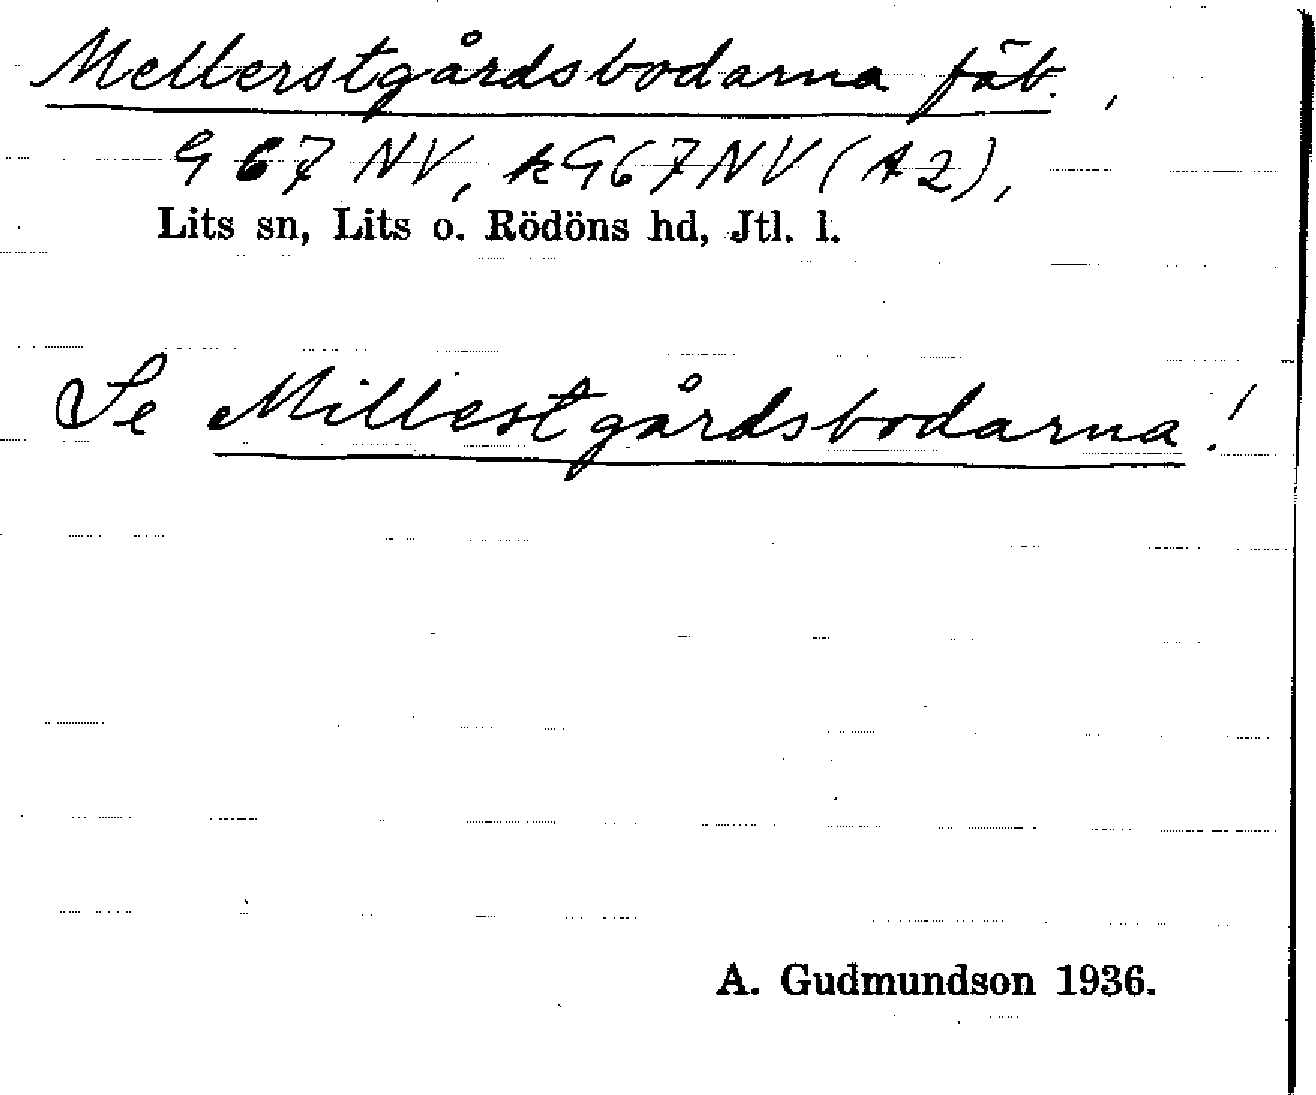 Mellerstgårdsbodarna fäb.,
G 67 NV, kG67NV (A2),
Lits sn, Lits o. Rödöns hd, Jtl. l.
Se Millestgårdsbodarna!
A. Gudmundson 1936.